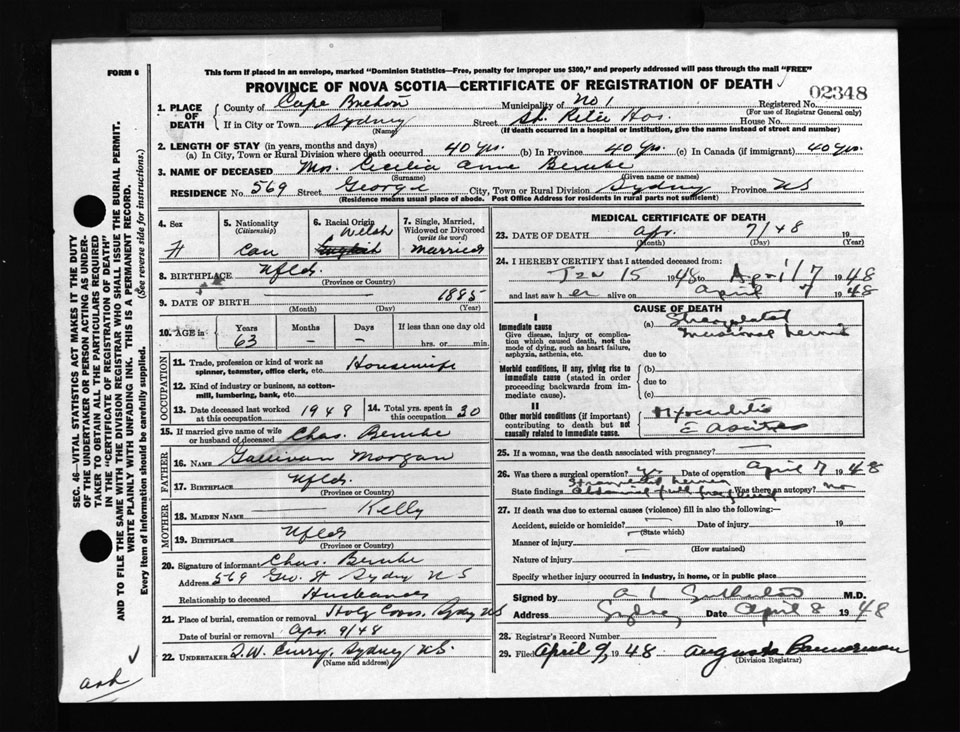 FORM 6
This form if placed in an envelope, marked "Dominion Statistics—Free, penalty for improper use $300," and properly addressed will pass through the mail "FREE"
PROVINCE OF NOVA SCOTIA—CERTIFICATE OF REGISTRATION OF DEATH
02348
1. PLACE OF DEATH
County of Cape Breton Municipality of No 1 Registered No.
(For use of Registrar General only)
If in City or Town Sydney Street St. Rita Hos. House No.
(Name) (If death occurred in a hospital or institution, give the name instead of street and number)
2. LENGTH OF STAY (in years, months and days)
(a) In City, Town or Rural Division where death occurred 40 yrs. (b) In Province 40 yrs. (c) In Canada (if immigrant) 40 yrs.
3. NAME OF DECEASED Mrs. Cecilia Anne
(Surname) (Given name or names)
RESIDENCE No. 569 Street George City, Town or Rural Division Sydney Province NS
(Residence means usual place of abode. Post Office Address for residents in rural parts not sufficient)
4. Sex
F
5. Nationality
(Citizenship)
Can
6. Racial Origin
Welsh
English
7. Single, Married, Widowed or Divorced
(write the word)
Married
8. BIRTHPLACE Nfld.
(Province or Country)
9. DATE OF BIRTH 1885
(Month) (Day) (Year)
10. AGE in Years Months Days If less than one day old
63 — — hrs. or min.
OCCUPATION
11. Trade, profession or kind of work as spinner, teamster, office clerk, etc. Housewife
12. Kind of industry or business, as cotton-mill, lumbering, bank, etc.
13. Date deceased last worked at this occupation 1948
14. Total yrs. spent in this occupation 30
15. If married give name of wife or husband of deceased Chas.
FATHER
16. NAME Morgan
17. BIRTHPLACE Nfld.
(Province or Country)
MOTHER
18. MAIDEN NAME Kelly
19. BIRTHPLACE Nfld
(Province or Country)
20. Signature of informant Chas.
Address 569 Geo. St Sydney NS
Relationship to deceased Husband
21. Place of burial, cremation or removal Holy Cross, Sydney NS
Date of burial or removal Apr. 9/48
22. UNDERTAKER Curry, Sydney NS.
(Name and address)
MEDICAL CERTIFICATE OF DEATH
23. DATE OF DEATH Apr. 7/48 19
(Month) (Day) (Year)
24. I HEREBY CERTIFY that I attended deceased from:
Jan 15 1948 to April 7 1948
and last saw her alive on April 7 1948
CAUSE OF DEATH
I
Immediate cause
Give disease, injury or complication which caused death, not the mode of dying, such as heart failure, asphyxia, asthenia, etc.
(a) Strangulated hernia
due to
Morbid conditions, if any, giving rise to immediate cause (stated in order proceeding backwards from immediate cause).
(b)
due to
(c)
II
Other morbid conditions (if important) contributing to death but not causally related to immediate cause.
Myocarditis
Ascites
25. If a woman, was the death associated with pregnancy?
26. Was there a surgical operation? Yes Date of operation April 7 1948
State findings Strangulated hernia
Abdominal full Was there an autopsy? No
27. If death was due to external causes (violence) fill in also the following:—
Accident, suicide or homicide? Date of injury 19
(State which)
Manner of injury
(How sustained)
Nature of injury
Specify whether injury occurred in industry, in home, or in public place
Signed by A L M.D.
Address Sydney Date April 8 1948
28. Registrar's Record Number
29. Filed April 9, 1948 Augusta Bannerman
(Division Registrar)
SEC. 46—VITAL STATISTICS ACT MAKES IT THE DUTY
OF THE UNDERTAKER OR PERSON ACTING AS UNDERTAKER TO OBTAIN ALL THE PARTICULARS REQUIRED
IN THE "CERTIFICATE OF REGISTRATION OF DEATH"
AND TO FILE THE SAME WITH THE DIVISION REGISTRAR WHO SHALL ISSUE THE BURIAL PERMIT.
WRITE PLAINLY WITH UNFADING INK. THIS IS A PERMANENT RECORD.
Every item of Information should be carefully supplied. (See reverse side for instructions.)